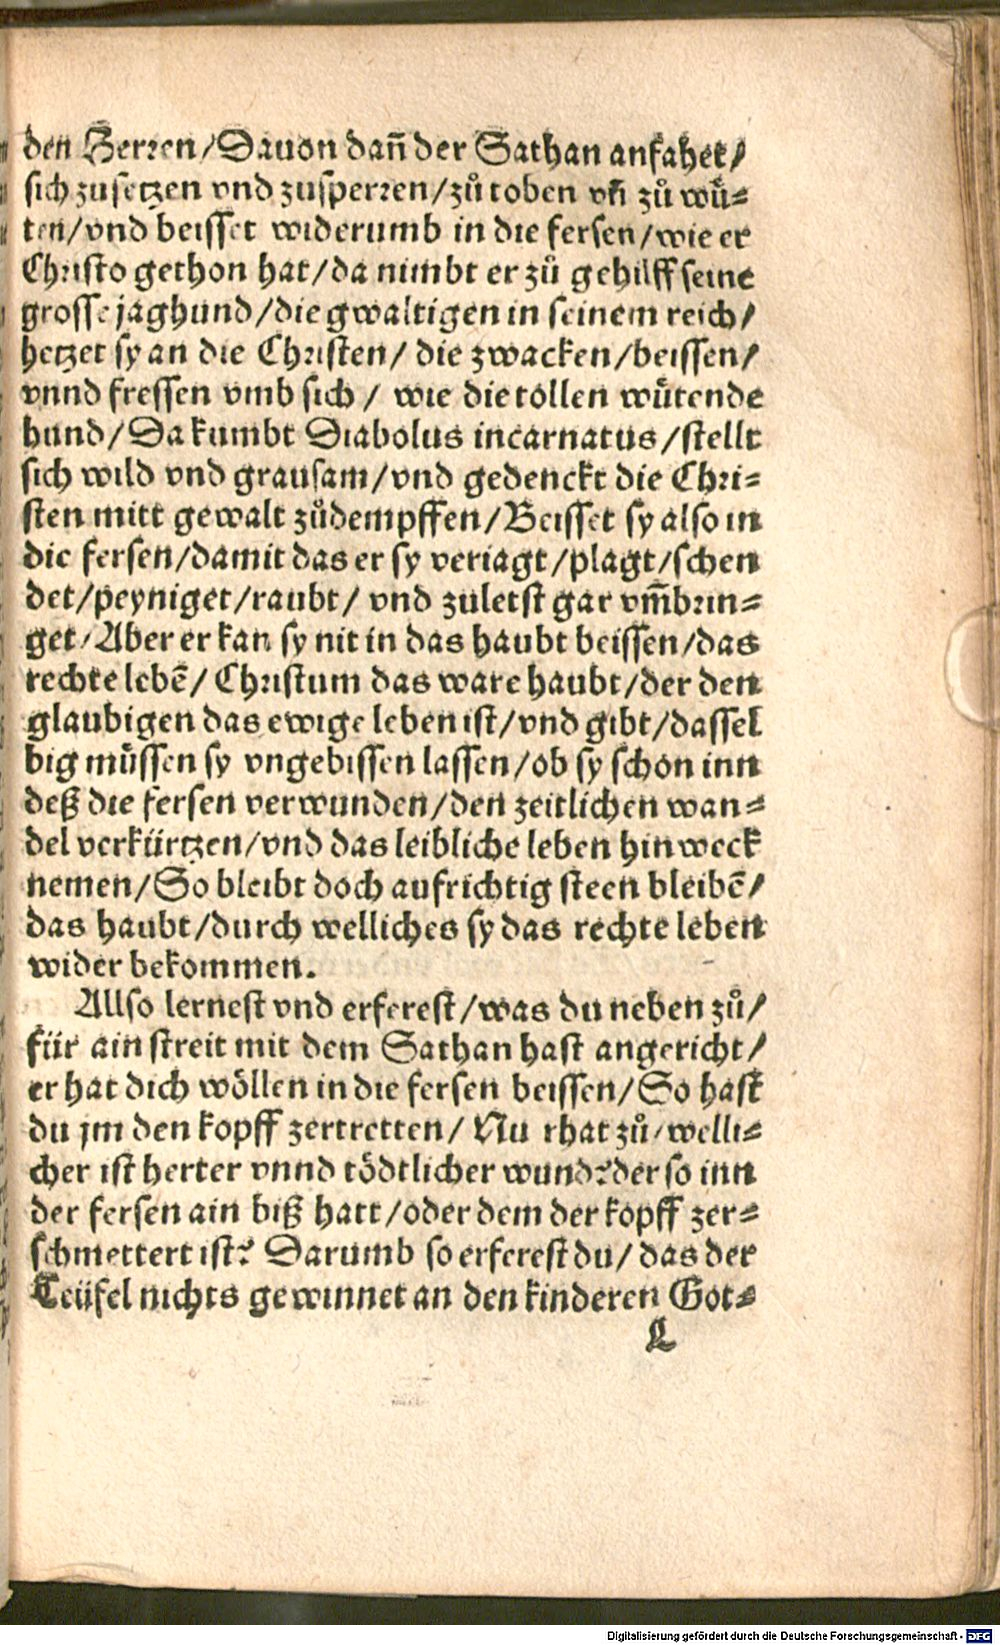 den Herren/Dauon dañ der Sathan anfahet/
sich zusetzen vnd zusperren/zů toben vñ zů wü⸗
ten/vnd beisset widerumb in die fersen/wie er
Christo gethon hat/da nimbt er zů gehilff seine
grosse jaghund/die gwaltigen in seinem reich/
hetzet sy an die Christen/ die zwacken/beissen/
vnnd fressen vmb sich/ wie die tollen wütende
hund/Da kumbt Diabolus incarnatus/stellt
sich wild vnd grausam/vnd gedenckt die Chri⸗
sten mitt gewalt zůdempffen/Beisset sy also in
die fersen/damit das er sy veriagt/plagt/schen
det/peyniget/raubt/ vnd zuletst gar vm̃brin⸗
get/Aber er kan sy nit in das haubt beissen/das
rechte lebē/ Christum das ware haubt/der den
glaubigen das ewige leben ist/vnd gibt/dassel
big müssen sy vngebissen lassen/ob sy schon inn
deß die fersen verwunden/den zeitlichen wan⸗
del verkürtzen/vnd das leibliche leben hinweck
nemen/So bleibt doch aufrichtig steen bleibē/
das haubt/durch welliches sy das rechte leben
wider bekommen.
Allso lernest vnd erferest/was du neben zů/
für ain streit mit dem Sathan hast angericht/
er hat dich wöllen in die fersen beissen/So hast
du jm den kopff zertretten/ Nu rhat zů/welli⸗
cher ist herter vnnd tödtlicher wund?der so inn
der fersen ain biß hatt/oder dem der kopff zer⸗
schmettert ist? Darumb so erferest du/ das der
Teüfel nichts gewinnet an den kinderen Got⸗
L
Digitalisierung gefördert durch die Deutsche Forschungsgemeinschaft - DFG